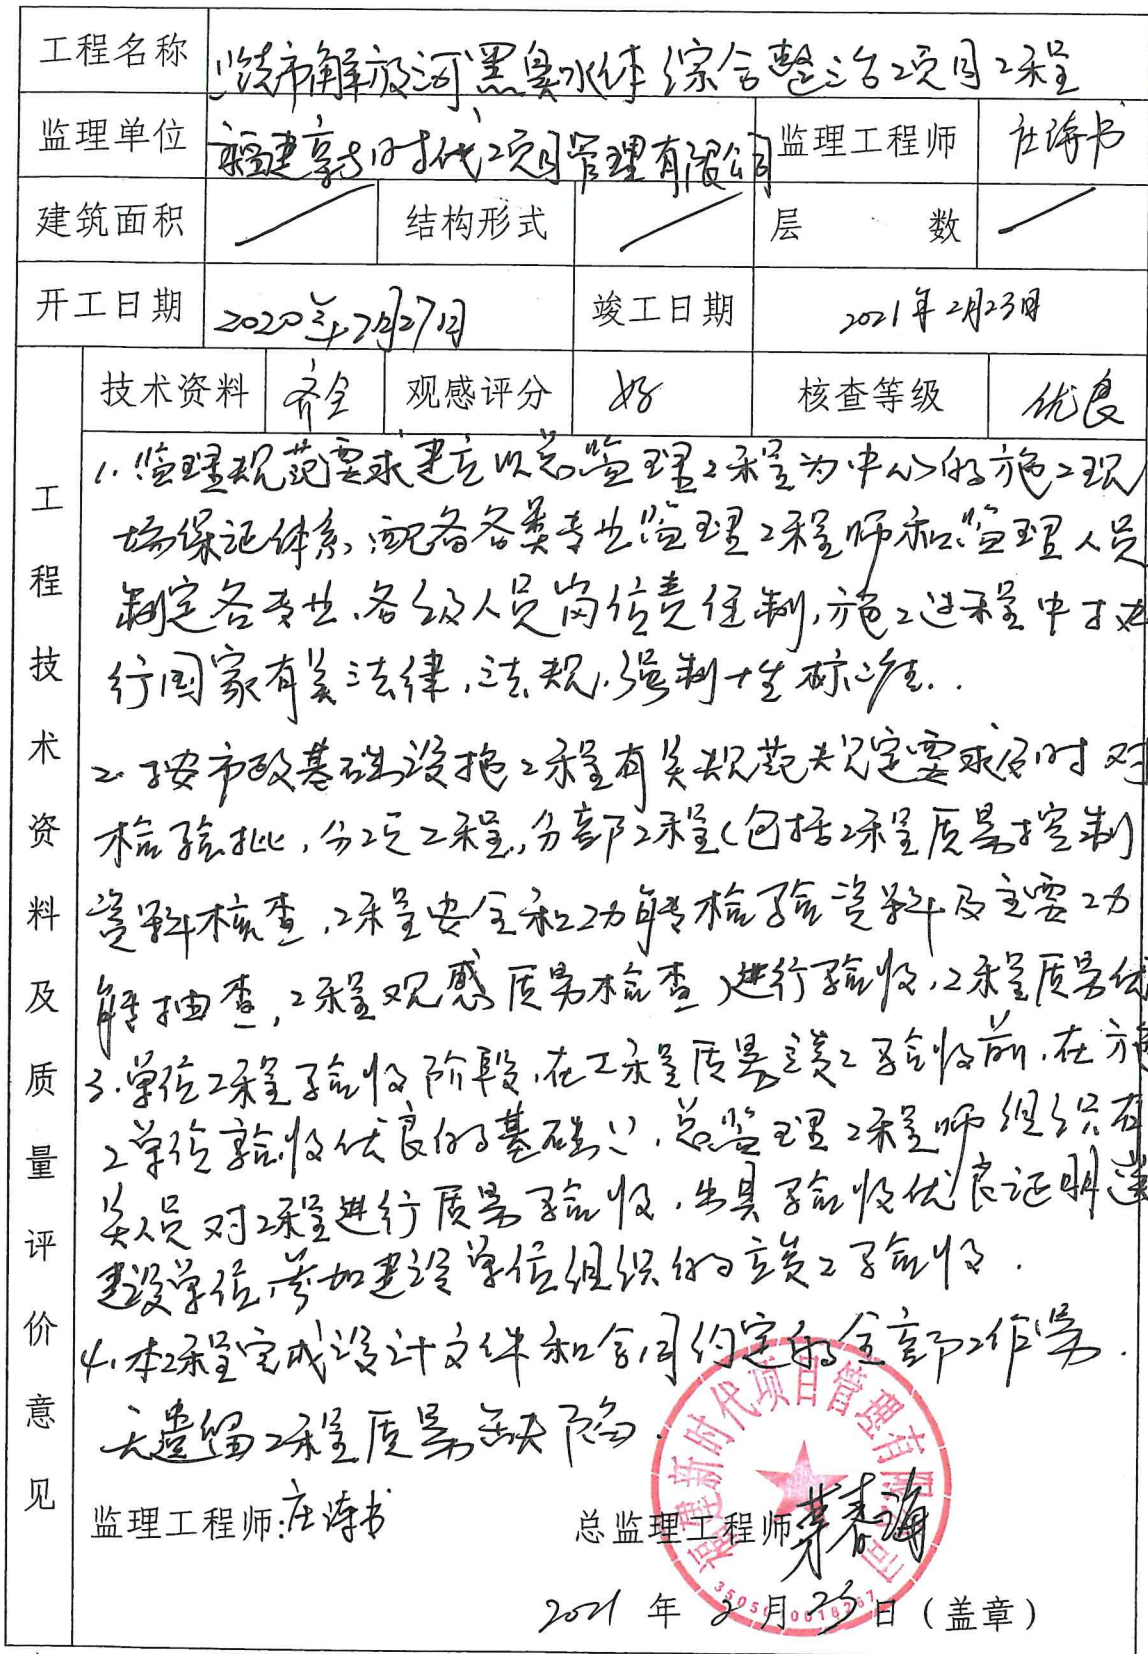 工程名称 市解放河黑臭水体综合整治项目工程
监理单位 福建新时代项目管理有限公司 监理工程师 庄海书
建筑面积 / 结构形式 / 层 数 /
开工日期 2020年2月27日 竣工日期 2021年2月23日
技术资料 齐全 观感评分 好 核查等级 优良
工程技术资料及质量评价意见
1.监理规范要求建立以总监理工程为中心的施工现
场保证体系,配备各类专业监理工程师和监理人员
制定各专业、各级人员岗位责任制,施工过程中执
行国家有关法律,法规,强制性标准.
2.按市政基础设施工程有关规范规定要求及时对
检验批,分项工程,分部工程(包括工程质量控制
资料核查,工程安全和功能检验资料及主要功
能抽查,工程观感质量检查)进行验收,工程质量优
3.单位工程验收阶段,在工程质量竣工验收前,在施
工单位验收优良的基础上,总监理工程师组织有
关人员对工程进行质量验收,出具验收优良证明
建设单位,参加建设单位组织的竣工验收.
4.本工程完成设计文件和合同约定的全部工作量.
无遗留工程质量缺陷.
福建新时代项目管理有限公司
监理工程师:庄海书 总监理工程师 春海
2021年2月23日(盖章)